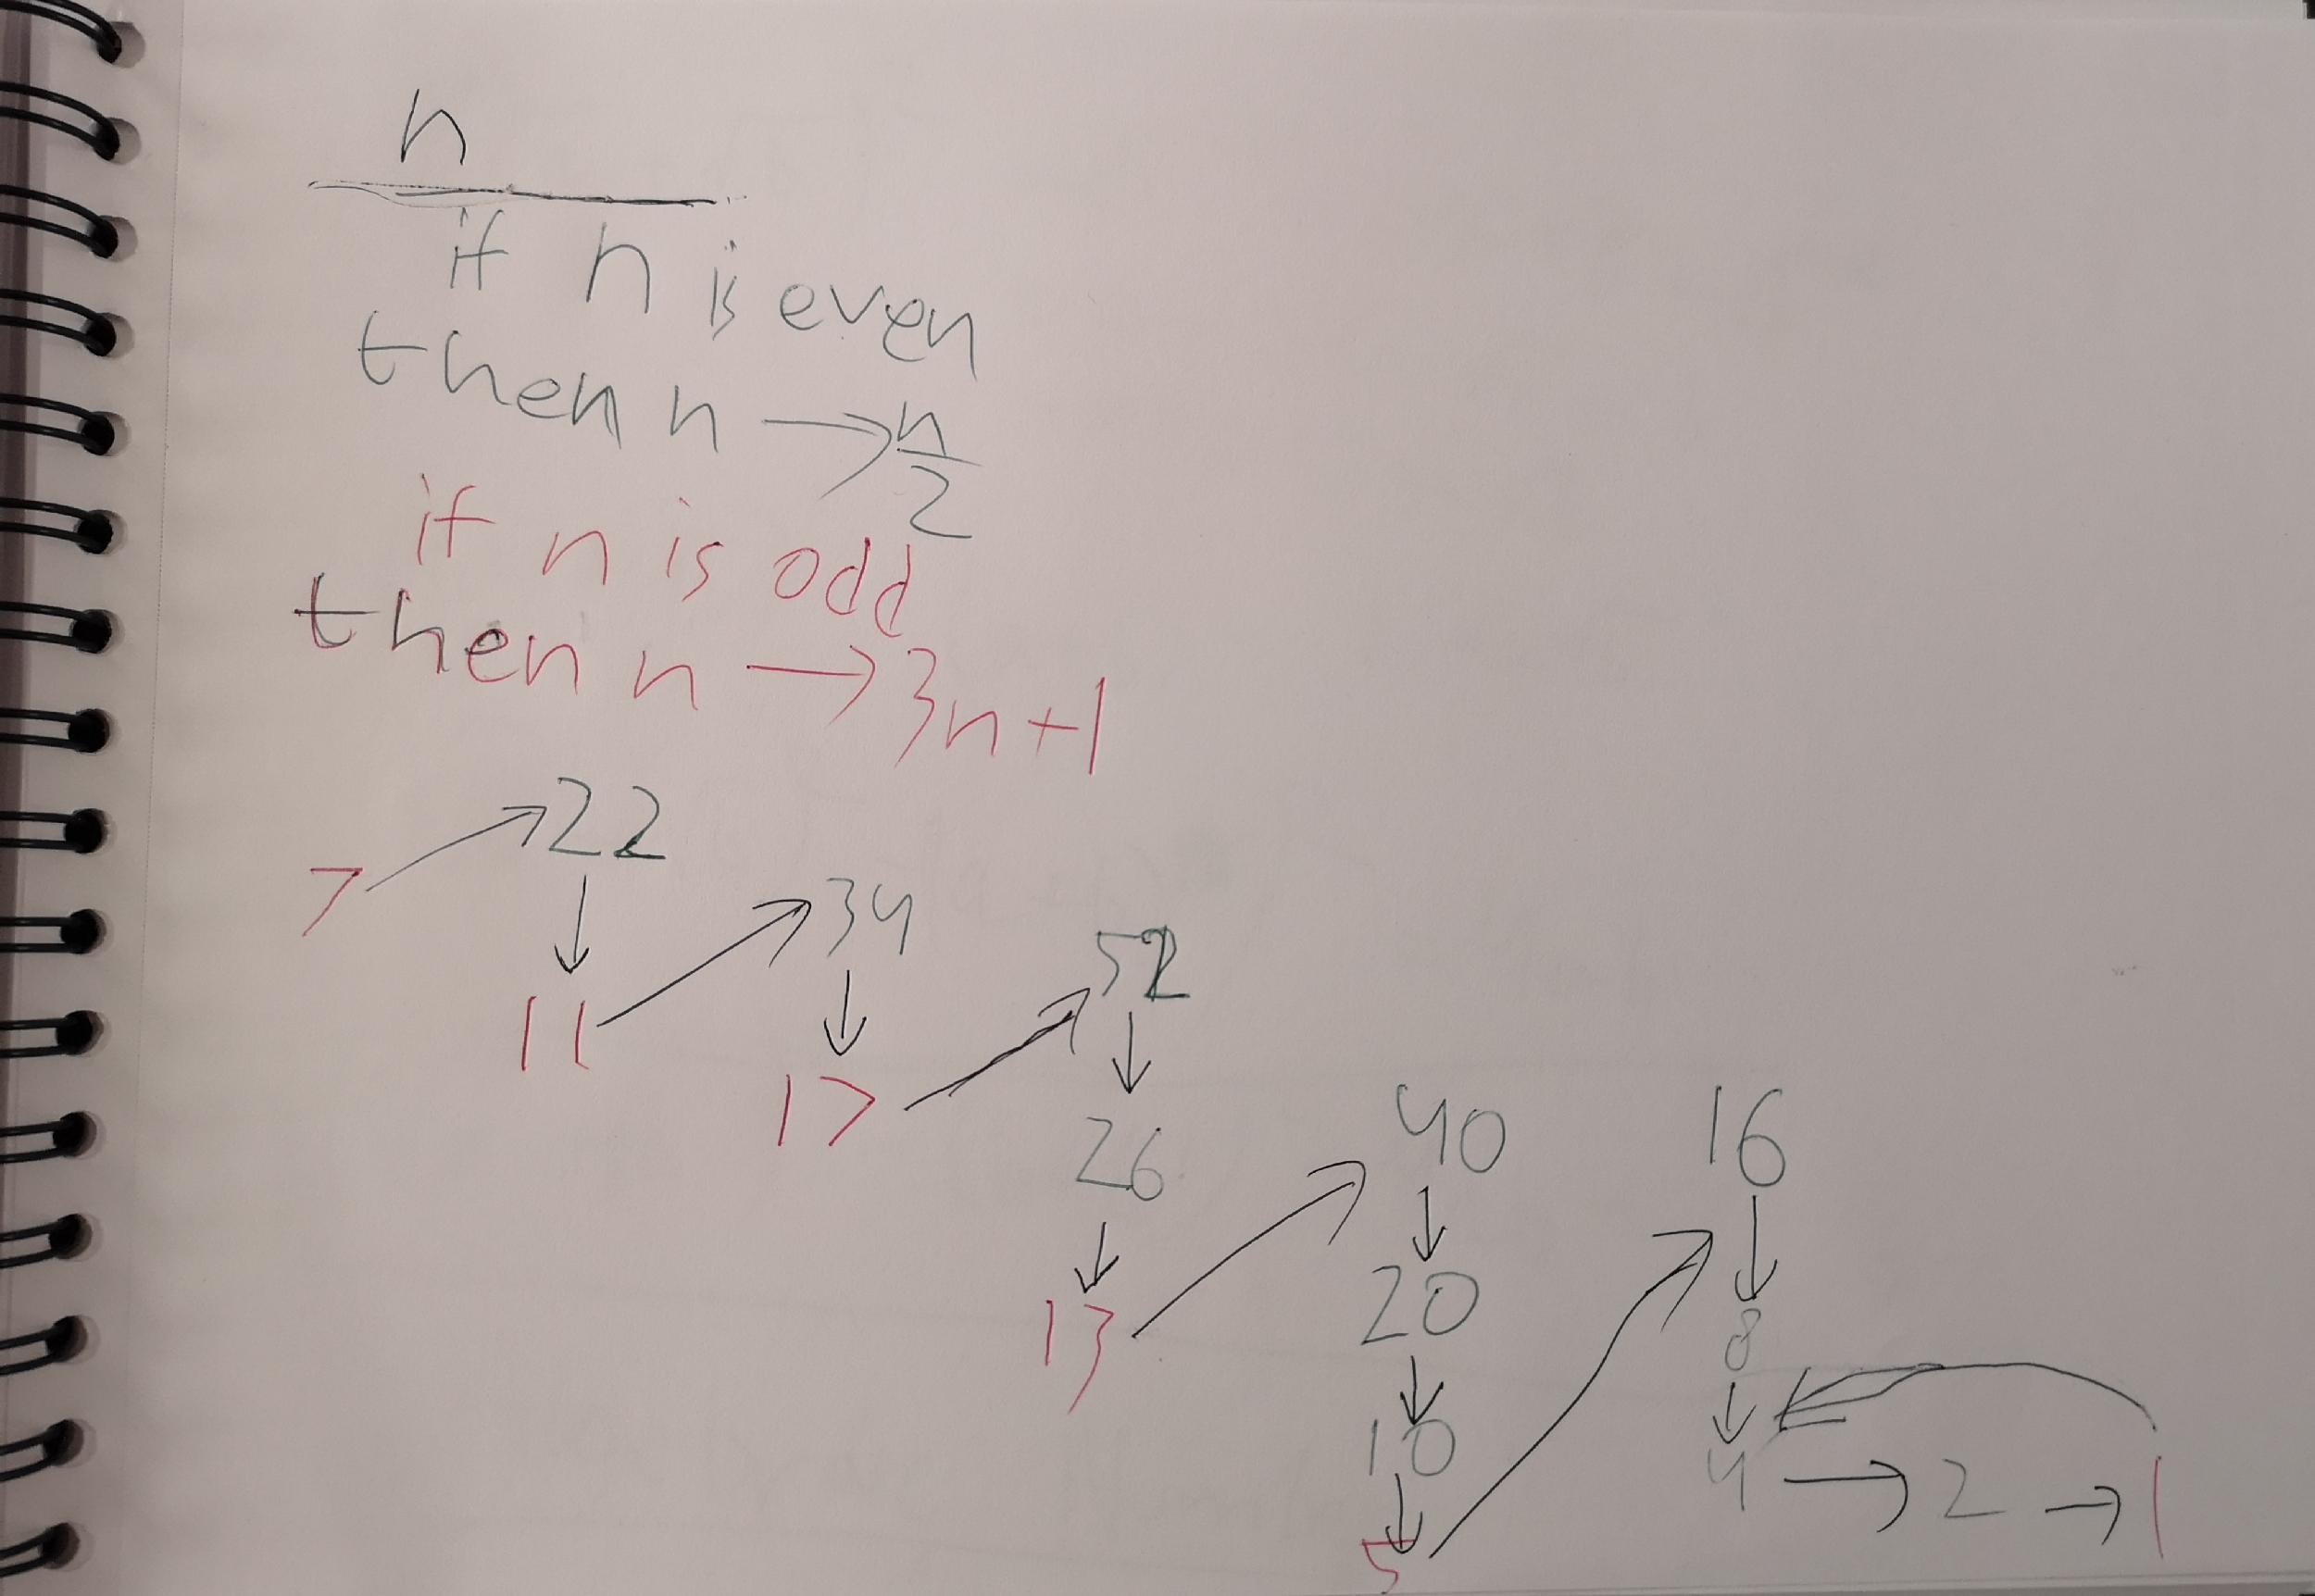 n
if n is even
then n → n/2
if n is odd
then n → 3n+1
7 → 22
↓
11 → 34
↓
17 → 52
↓
26
↓
13 → 40
↓
20
↓
10
↓
5 → 16
↓
8
↓
4 → 2 → 1